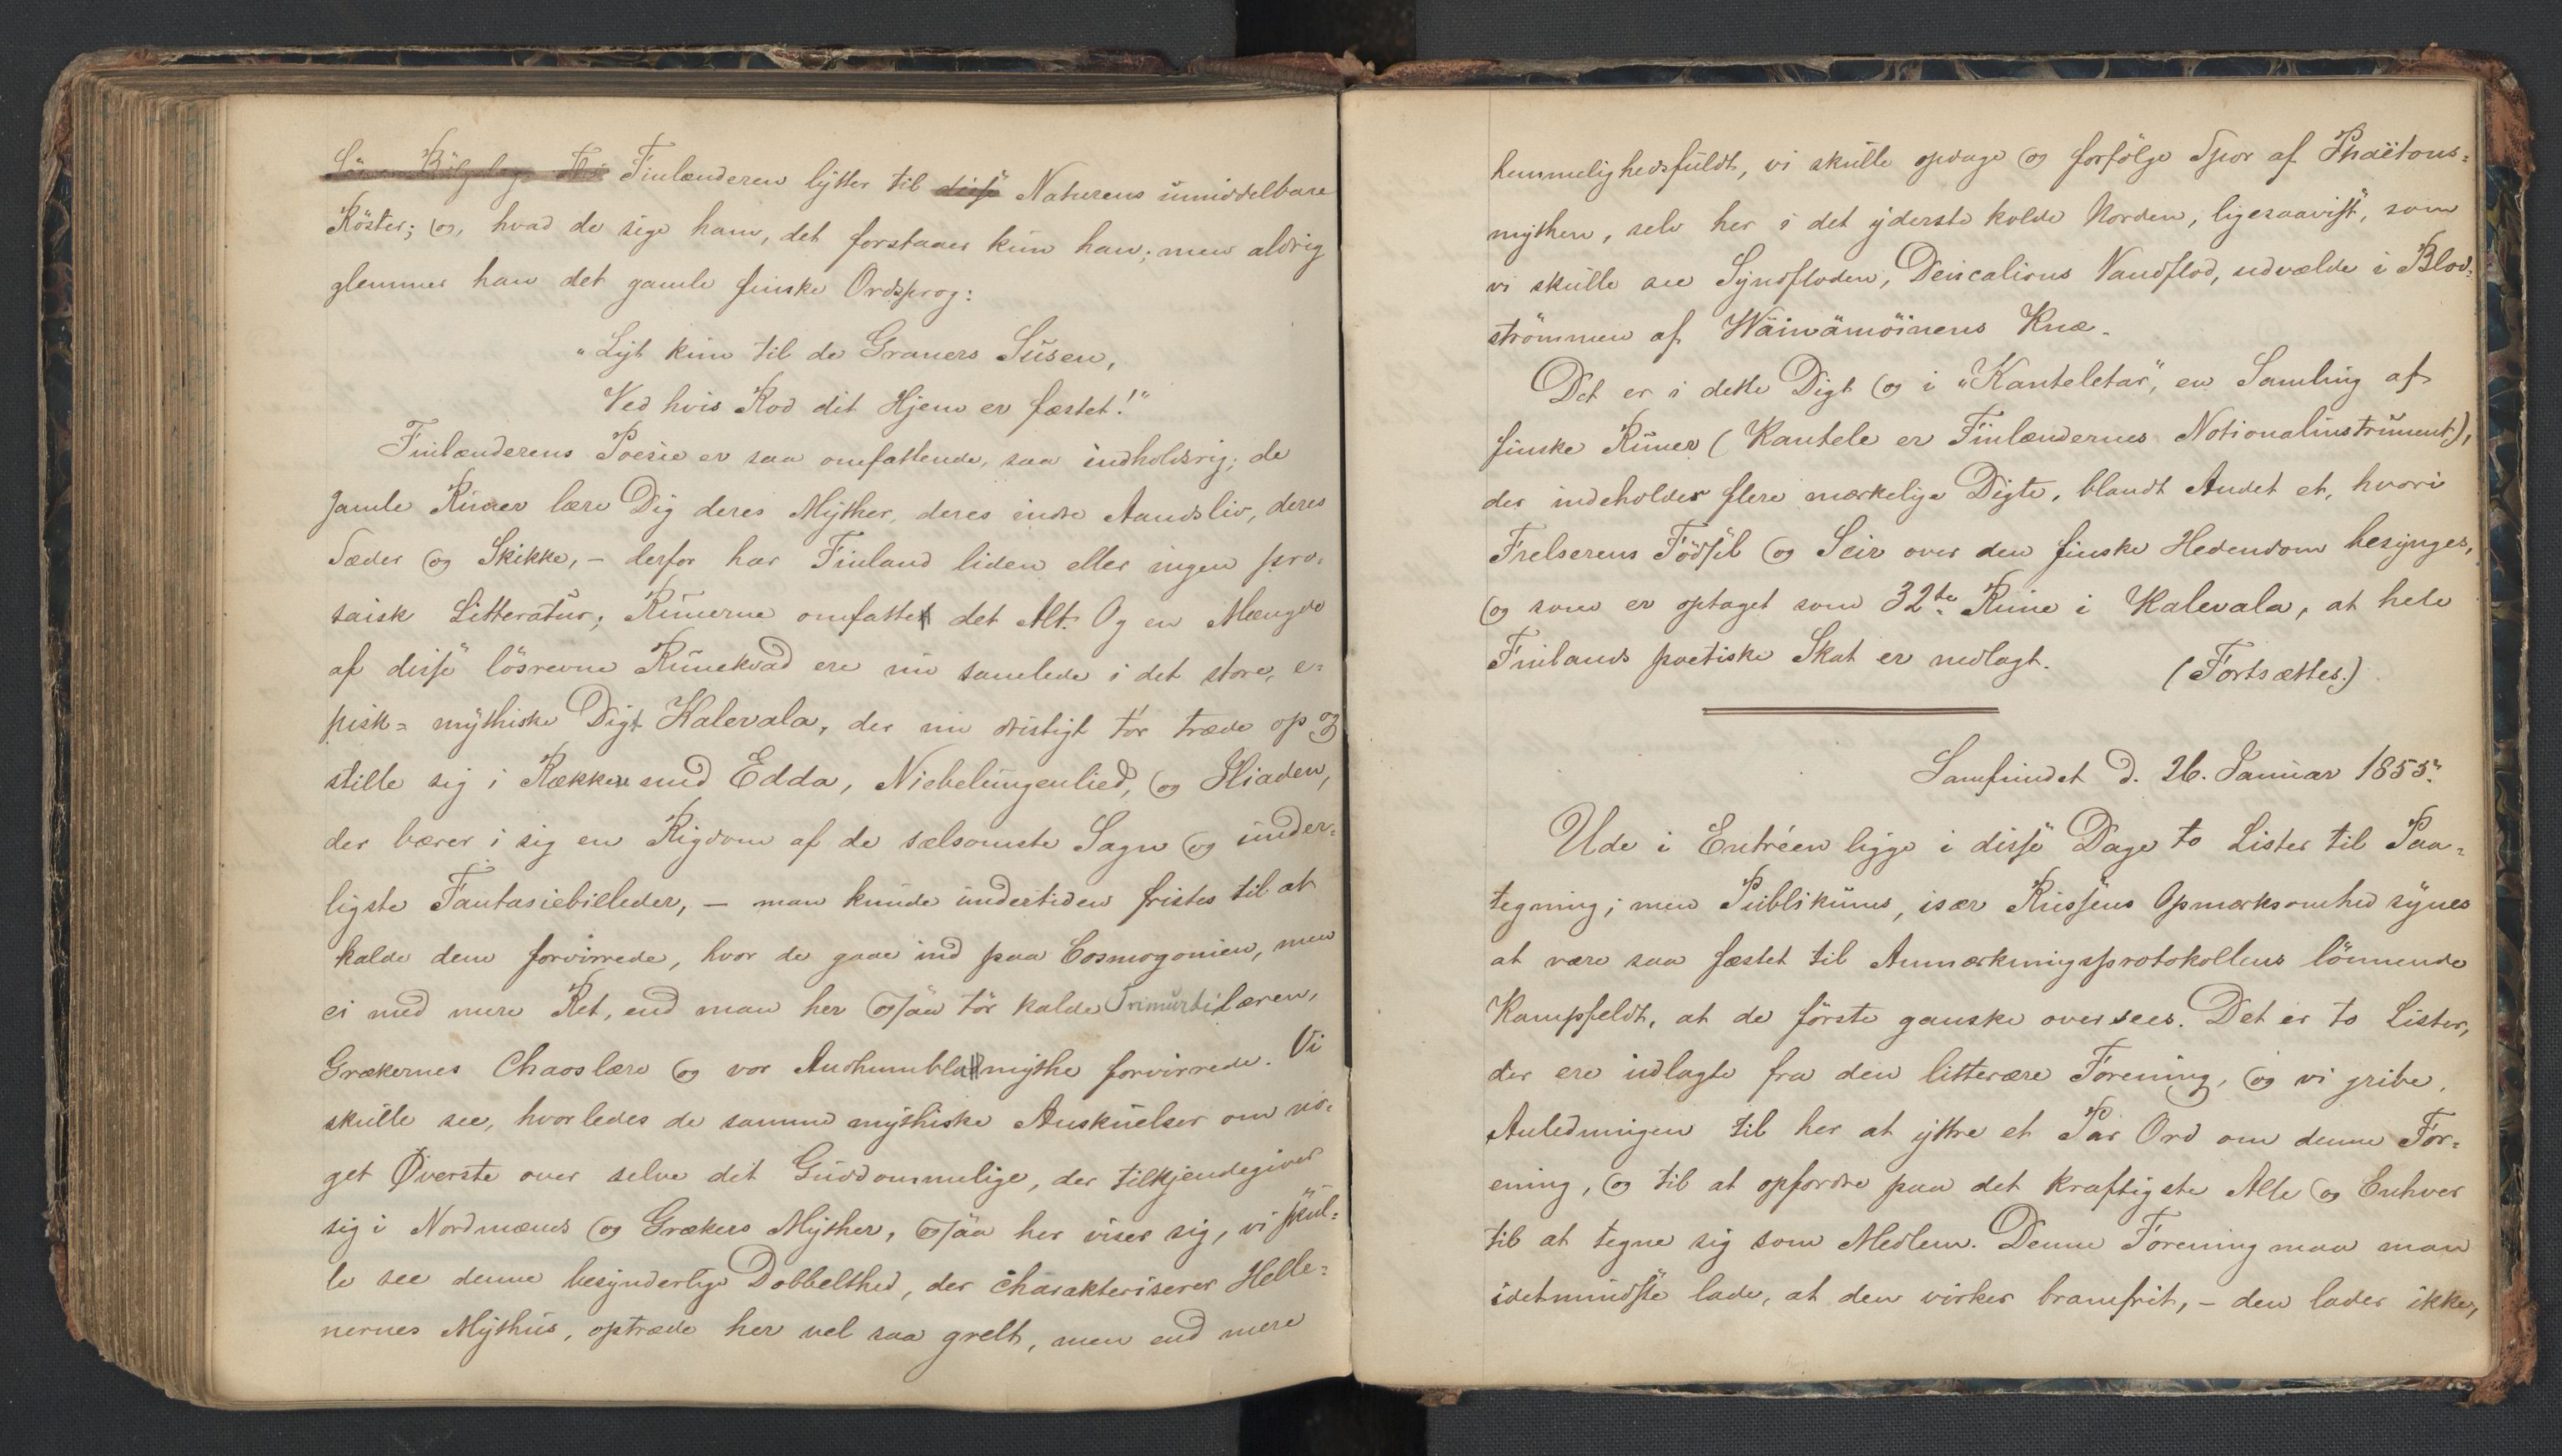 Finlænderen lytter til disse Naturens umiddelbare
Röster; og, hvad de sige ham, det forstaaer kun han; men aldrig
glemmer han det gamle finske Ordsprog:
"Lyt kun til de Graners Susen,
Ved hvis Rod dit Hjem er fæstet!"
Finlænderens Poesie er saa omfattende, saa indholdsrig; de
gamle Runer lære Dig deres Myther, deres indre Aandsliv, deres
Sæder og Skikke, - derfor har Finland liden eller ingen pro-
saisk Litteratur; Runerne omfatte det Alt. Og en Mængde
af disse lösrevne Runekvad ere nu samlede i det store, e-
pisk-mythiske Digt Kalevala, der nu dristigt tör træde op og
stille sig i Række med Edda, Niebelungenlied, og Iliaden,
der bærer i sig en Rigdom af de sælsomste Sagn og under-
ligste Fantasiebilleder, - man kunde undertiden fristes til at
kalde dem forvirrede, hvor de gaae ind paa Cosmogonien, men
ei med mere Ret, end man her ogsaa tör kalde Trimurtilæren,
Grækernes Chaoslære og vor Audhumblamythe forvirrede. Vi
skulle see, hvorledes de samme mythiske Anskuelser om no-
get Øverste over selve det Guddommelige, der tilkjendegiver
sig i Nordmænds og Grækers Myther, ogsaa her viser sig, vi skul-
le see denne besynderlige Dobbelthed, der charakteriserer Helle-
nernes Mythus, optræde her vel saa grelt, men end mere
hemmelighedsfuldt, vi skulle opdage og forfölge Spor af Phaëtons-
mythen, selv her i det yderste kolde Norden, ligesaavist, som
vi skulle see Syndfloden, Deucalions Vandflod, udvælde i Blod-
strömmen af Wäinämöinens Knæ.
Det er i dette Digt og i "Kanteletar", en Samling af
finske Runer (Kantele er Finlændernes Nationalinstrument),
der indeholder flere mærkelige Digte, blandt Andet et, hvori
Frelserens Födsel og Seir over den finske Hedendom besynges,
og som er optaget som 32te Rune i Kalevala, at hele
Finlands poetiske Skat er nedlagt. (Fortsættes.)
Samfundet d. 26. Januar 1855.
Ude i Entréen ligge i disse Dage to Lister til Paa-
tegning; men Publikums, især Russens Opmærksomhed synes
at være saa fæstet til Anmærkningsprotokollens lönnende
Kampfeldt, at de förste ganske oversees. Det er to Lister,
der ere udlagte fra den litterære Forening, og vi gribe
Anledningen til her at yttre et Par Ord om denne For-
ening, og til at opfordre paa det kraftigste Alle og Enhver
til at tegne sig som Medlem. Denne Forening maa man
idetmindste lade, at den virker bramfrit, - den lader ikke,